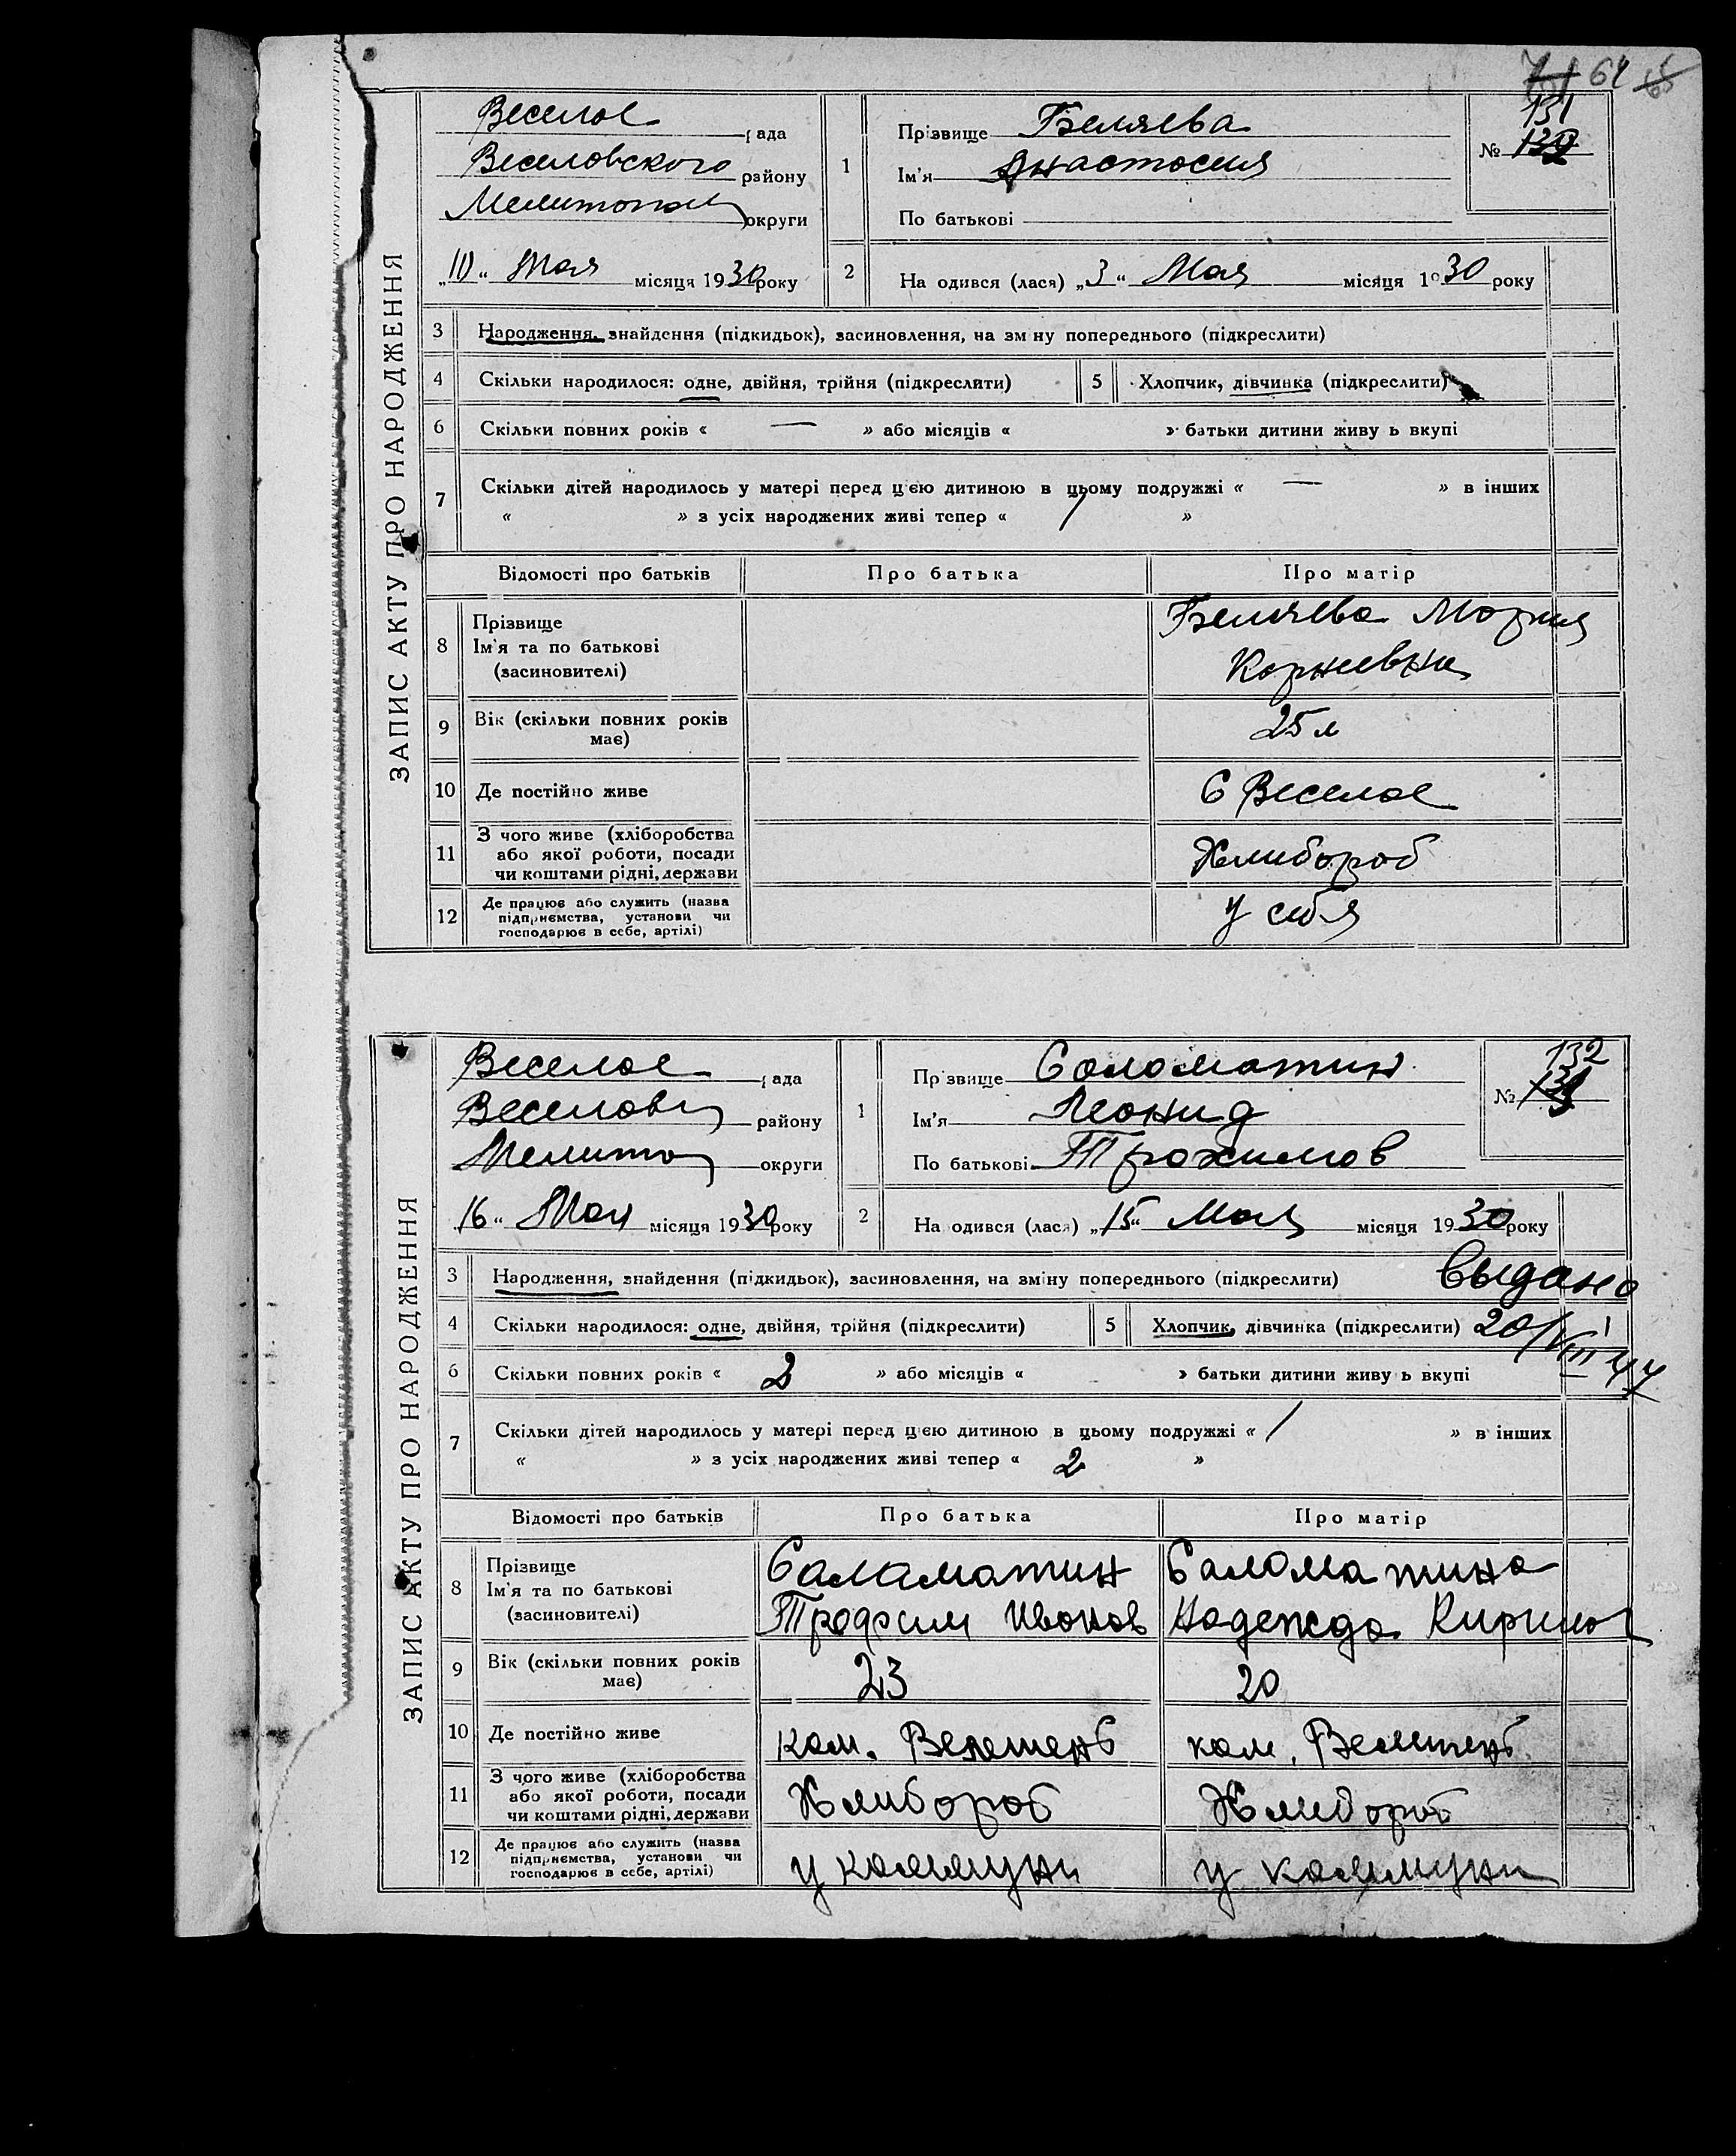 64
ЗАПИС АКТУ ПРО НАРОДЖЕННЯ
Веселое рада
Веселовского району
Мелитопол округи
„10“ Мая місяця 1930 року
1
Прізвище Беляева
Ім'я Анастосия
По батькові
№ 131
2
На одився (лася) „3“ Мая місяця 1930 року
3 Народження, знайдення (підкидьок), засиновлення, на зм ну попереднього (підкреслити)
4 Скільки народилося: одне, двійня, трійня (підкреслити) 5 Хлопчик, дівчинка (підкреслити)
6 Скільки повних років « — » або місяців « » батьки дитини живу ь вкупі
7 Скільки дітей народилось у матері перед цією дитиною в цьому подружжі « — » в інших
« » з усіх народжених живі тепер « / »
Відомості про батьків Про батька Про матір
8 Прізвище
Ім'я та по батькові
(засиновителі)
Беляева Мория
Корнеевна
9 Вік (скільки повних років
має)
25 л
10 Де постійно живе С Веселое
11 З чого живе (хліборобства
або якої роботи, посади
чи коштами рідні, держави
Хлибороб
12 Де працює або служить (назва
підприємства, установи чи
господарює в себе, артілі)
у себя
ЗАПИС АКТУ ПРО НАРОДЖЕННЯ
Веселое рада
Веселов району
Мелито округи
16“ Мая місяця 1930 року
1
Пр звище Соломатин
Ім'я Леонид
По батькові Трохимов
№ 132
2
На одився (лася) „15“ Мая місяця 1930 року
3 Народження, знайдення (підкидьок), засиновлення, на зміну попереднього (підкреслити) Выдано
4 Скільки народилося: одне, двійня, трійня (підкреслити) 5 Хлопчик, дівчинка (підкреслити) 20/VIII 47
6 Скільки повних років « 2 » або місяців « » батьки дитини живу ь вкупі
7 Скільки дітей народилось у матері перед цією дитиною в цьому подружжі « / » в інших
« » з усіх народжених живі тепер « 2 »
Відомості про батьків Про батька Про матір
8 Прізвище
Ім'я та по батькові
(засиновителі)
Саламатин
Трофим Иванов
Саломатина
Надежда Кирилов
9 Вік (скільки повних років
має)
23 20
10 Де постійно живе ком. ком.
11 З чого живе (хліборобства
або якої роботи, посади
чи коштами рідні, держави
Хлибороб Хлибороб
12 Де працює або служить (назва
підприємства, установи чи
господарює в себе, артілі)
у коммуни у коммуни